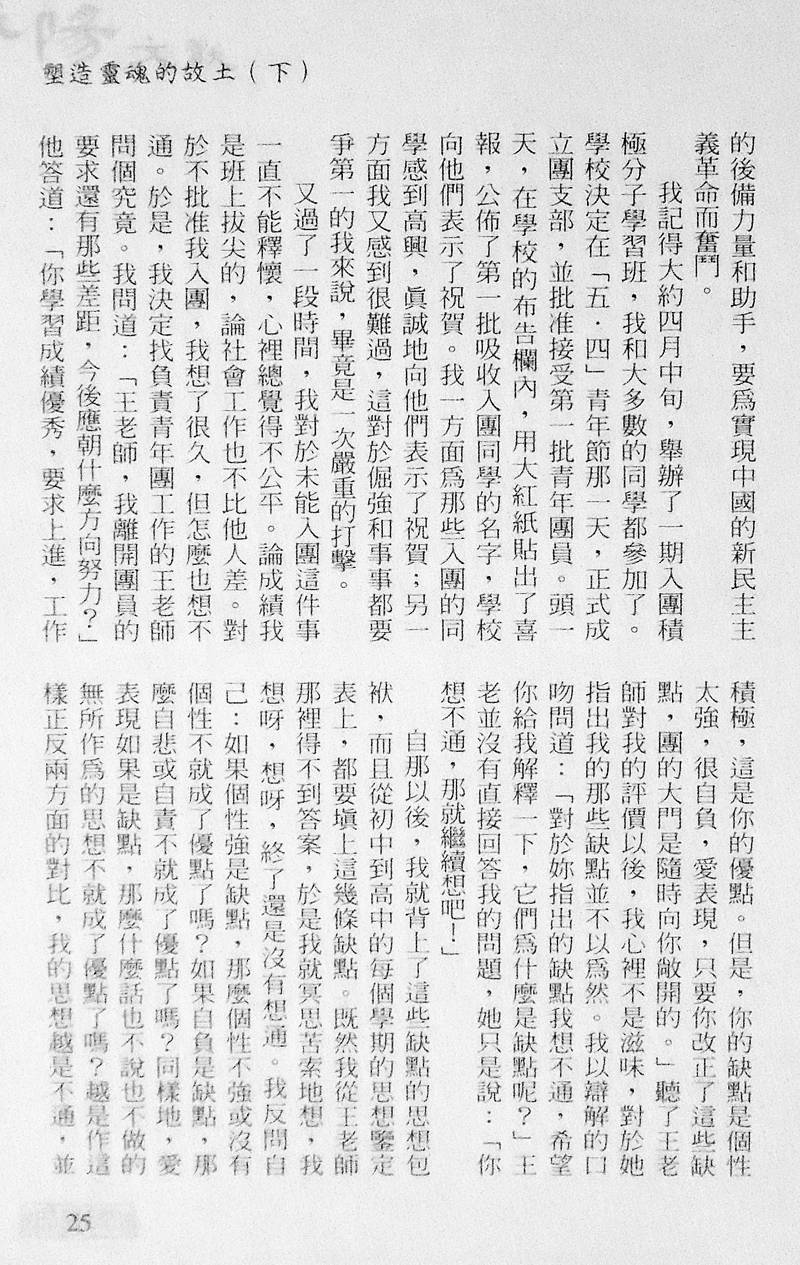 塑造靈魂的故土（下）
的後備力量和助手，要爲實現中國的新民主主
義革命而奮鬥。
我記得大約四月中旬，舉辦了一期入團積
極分子學習班，我和大多數的同學都參加了。
學校決定在「五．四」青年節那一天，正式成
立團支部，並批准接受第一批青年團員。頭一
天，在學校的布告欄內，用大紅紙貼出了喜
報，公佈了第一批吸收入團同學的名字，學校
向他們表示了祝賀。我一方面爲那些入團的同
學感到高興，眞誠地向他們表示了祝賀；另一
方面我又感到很難過，這對於倔強和事事都要
爭第一的我來說，畢竟是一次嚴重的打擊。
又過了一段時間，我對於未能入團這件事
一直不能釋懷，心裡總覺得不公平。論成績我
是班上拔尖的，論社會工作也不比他人差。對
於不批准我入團，我想了很久，但怎麼也想不
通。於是，我決定找負責青年團工作的王老師
問個究竟。我問道：「王老師，我離開團員的
要求還有那些差距，今後應朝什麼方向努力？」
他答道：「你學習成績優秀，要求上進，工作
積極，這是你的優點。但是，你的缺點是個性
太強，很自負，愛表現，只要你改正了這些缺
點，團的大門是隨時向你敞開的。」聽了王老
師對我的評價以後，我心裡不是滋味，對於她
指出我的那些缺點並不以爲然。我以辯解的口
吻問道：「對於妳指出的缺點我想不通，希望
你給我解釋一下，它們爲什麼是缺點呢？」王
老並沒有直接回答我的問題，她只是說：「你
想不通，那就繼續想吧！」
自那以後，我就背上了這些缺點的思想包
袱，而且從初中到高中的每個學期的思想鑒定
表上，都要填上這幾條缺點。既然我從王老師
那裡得不到答案，於是我就冥思苦索地想，我
想呀，想呀，終了還是沒有想通。我反問自
己：如果個性強是缺點，那麼個性不強或沒有
個性不就成了優點了嗎？如果自負是缺點，那
麼自悲或自責不就成了優點了嗎？同樣地，愛
表現如果是缺點，那麼什麼話也不說也不做的
無所作爲的思想不就成了優點了嗎？越是作這
樣正反兩方面的對比，我的思想越是不通，並
25